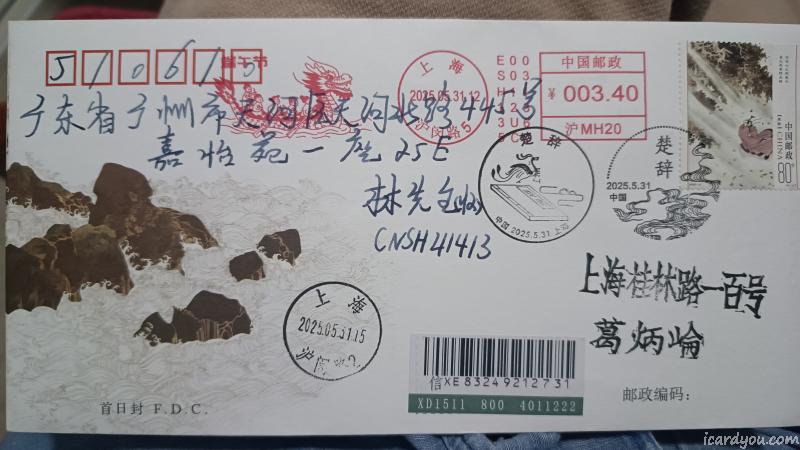 510615
端午节
广东省广州市天河区天河北路445号
嘉怡苑一座25E
林先生(收)
CNSH41413
上海
2025.05.31.12
沪闵路5
中国邮政
¥ 003.40
沪MH20
中国邮政
CHINA
80分
楚辞
中国 2025.5.31 上海
楚辞
2025.5.31
中国
上海桂林路一百号
葛炳崙
上海
2025.05.31.15
信XE83249212731
XD1511 800 4011222
邮政编码：
首日封 F.D.C.
icardyou.com